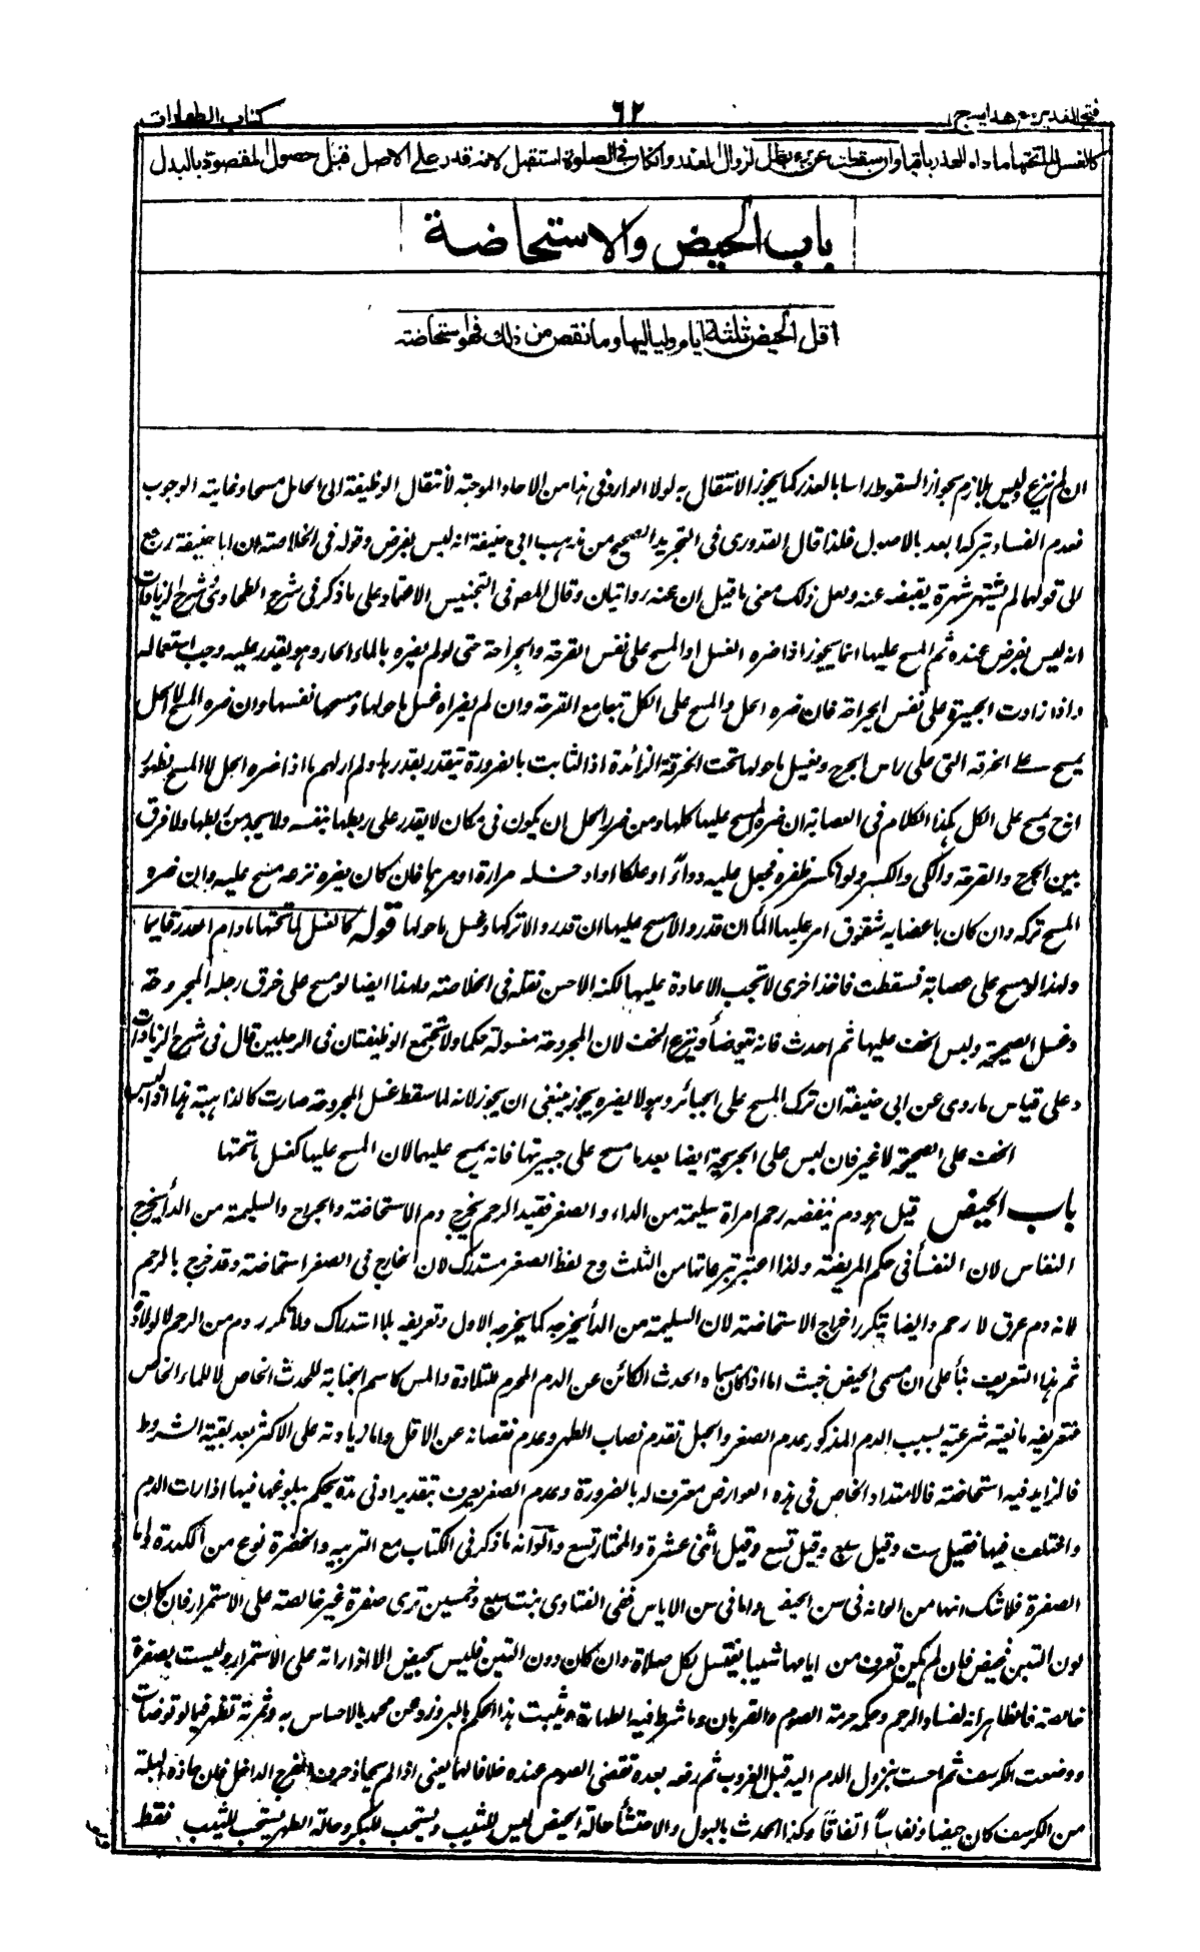 فتح القدير مع هدايه ج ١
٦٢
كتاب الطهارات
كالغسل لما تحتها ما دام العذر باقيا وان سقطت عن برء بطل لزوال العذر وان كان فى الصلوة استقبل لانه قدر على الاصل قبل حصول المقصود بالبدل
باب الحيض والاستحاضة
اقل الحيض ثلثة ايام ولياليها وما نقص من ذلك فهو استحاضة
ان لم ينزع وليس بلازم بجواز السقوط راسا بالعذر كما يجوز الانتقال به لولا الوارد فى هذا من الاحاد الموجبة لانتقال الوظيفة الى الحائل مسحا وغايته الوجوب
فعدم الفساد بتركه اقعد بالاصول فلذا قال القدورى فى التجريد الصحيح من مذهب ابى حنيفة انه ليس بفرض وقوله فى الخلاصة ان ابا حنيفة رجع
الى قولهما لم يشتهر شهرة نقيضه عنه ولعل ذلك معنى ما قيل ان عنه روايتان وقال المصه فى التجنيس الاعتماد على ما ذكر فى شرح الطحاوى وشرح الزيادات
انه ليس بفرض عنده ثم المسح عليها انما يجوز اذا ضره الغسل او المسح على نفس القرحة والجراحة حتى لو لم يضره بالماء الحار وهو يقدر عليه وجب استعماله
واذا زادت الجبيرة على نفس الجراحة فان ضره الحل والمسح على الكل تبعا مع القرحة وان لم يضراه غسل ما حولها ومسحها نفسها وان ضره المسح لا الحل
يمسح على الخرقة التى على راس الجرح ويغسل ما حولها تحت الخرقة الزائدة اذ الثابت بالضرورة يتقدر بقدرها ولم ار لهم ما اذا ضره الحل لا المسح لظهور
انه ح يمسح على الكل هكذا الكلام فى العصابة ان ضره المسح عليها كلها ومن ضرر الحل ان يكون فى مكان لا يقدر على ربطها بنفسه ولا يجد من يربطها ولا فرق
بين الجرح والقرحة والكى والكسر ولو انكسر ظفره فجعل عليه دواء او علكا او ادخله مرارة او مرهما فان كان يضره نزعه مسح عليه وان ضره
المسح تركه وان كان باعضائه شقوق امر عليها الماء ان قدر والا مسح عليها ان قدر والا تركها وغسل ما حولها قوله كالغسل لما تحتها ما دام العذر قايما
ولهذا لو مسح على عصابة فسقطت فاخذ اخرى لا تجب الاعادة عليها لكنه الاحسن نقله فى الخلاصة ولهذا ايضا لو مسح على خرق رجله المجروحة
وغسل الصحيحة ولبس الخف عليها ثم احدث فانه يتوضأ وينزع الخف لان المجروحة مغسولة حكما ولا تجتمع الوظيفتان فى الرجلين قال فى شرح الزيادات
وعلى قياس ما روى عن ابى حنيفة ان ترك المسح على الجبائر وهو لا يضره يجوز ينبغى ان يجوز لانه لما سقط غسل المجروحة صارت كالذاهبة هذا اذا لبس
الخف على الصحيحة لا غير فان لبس على الجريحة ايضا بعدما مسح على جبيرتها فانه يمسح عليهما لان المسح عليها كغسل ما تحتها
باب الحيض قيل هو دم ينفضه رحم امراة سليمة من الداء والصغر فبقيد الرحم يخرج دم الاستحاضة والجراح والسليمة من الداء يخرج
النفاس لان النفسأ فى حكم المريضة ولذا اعتبر تبرعاتها من الثلث وح لفظ الصغر مستدرك لان الخارج فى الصغر استحاضة وقد خرج بالرحم
لانه دم عرق لا رحم وايضا يتكرر اخراج الاستحاضة لان السليمة من الدأ يخرجه كما يخرجه الاول وتعريفه بلا استدراك ولا تكرر دم من الرحم لا لولادة
ثم هذا التعريف بنأ على ان مسمى الحيض خبث اما اذا كان مسماه الحدث الكائن عن الدم المحرم للتلاوة والمس كاسم الجنابة للحدث الخاص لا للماء الخاص
فتعريفه مانعية شرعية بسبب الدم المذكور عدم الصغر والحبل تقدم نصاب الطهر وعدم نقصانه عن الاقل واما زيادته على الاكثر بعد بقية الشروط
فالزايد فيه استحاضة فالامتداد الخاص فى هذه العوارض معرف له بالضرورة وعدم الصغر يعرف بتقدير ادنى مدة يحكم ببلوغها فيها اذا رات الدم
واختلف فيها فقيل ست وقيل سبع وقيل تسع وقيل اثنى عشرة والمختار تسع والوانه ما ذكر فى الكتاب مع التربيه والخضرة نوع من الكدرة اما
الصفرة فلا شك انها من الوانه فى سن الحيض واما فى سن الاياس ففى الفتاوى بنت سبع وخمسين ترى صفرة غير خالصة على الاستمرار فان كان
لون التبن فحيض فان لم يكن تعرف من ايامها شيا تغتسل لكل صلاة وان كان دون التبن فليس بحيض الا اذا راته على الاستمرار وليست بصفرة
خالصة فالظاهر انه لفساد الرحم وحكمه حرمة الصوم والقربان وما شرط فيه الطهارة ويثبت هذا الحكم بالبروز وعن محمد بالاحساس به وثمرته تظهر فيما لو توضأت
ووضعت الكرسف ثم احست بنزول الدم اليه قبل الغروب ثم رفعه بعده تقضى الصوم عنده خلافا لهما يعنى اذا لم يحاذ حرف الفرج الداخل فان حاذه البلة
من الكرسف كان حيضا ونفاساً اتفاقاً وكذا الحدث بالبول والاحتشأ حالة الحيض ليس للثيب ويستحب للبكر وحالة الطهر يستحب للثيب فقط